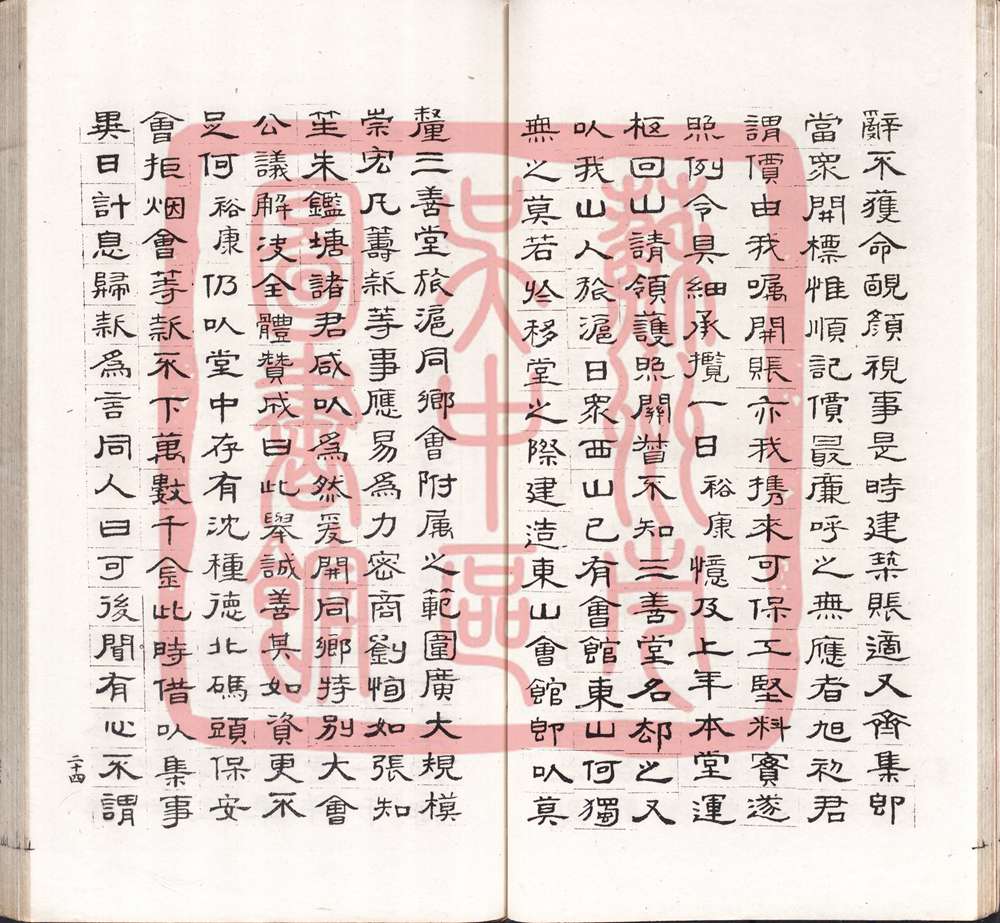 辭不獲命靦顏視事是時建築賬適又齊集即
當眾開標惟順記價最廉呼之無應者旭初君
謂價由我囑開賬亦我攜來可保工堅料實遂
照例令具細承攬一日裕康憶及上年本堂運
柩回山請領護照關督不知三善堂名郄之又
以我山人旅滬日眾西山已有會館東山何獨
無之莫若於移堂之際建造東山會館即以莫
釐三善堂旅滬同鄉會附属之範圍廣大規模
崇宏凡籌款等事應易為力密商劉恂如張知
笙朱鑑塘諸君咸以為然爰開同鄉特別大會
公議解決全體贊成曰此舉誠善其如資更不
足何裕康仍以堂中存有沈種德北碼頭保安
會拒烟會等款不下萬數千金此時借以集事
異日計息歸款為言同人曰可後聞有心不謂
二十四
蘇州市
吳中區
圖書館